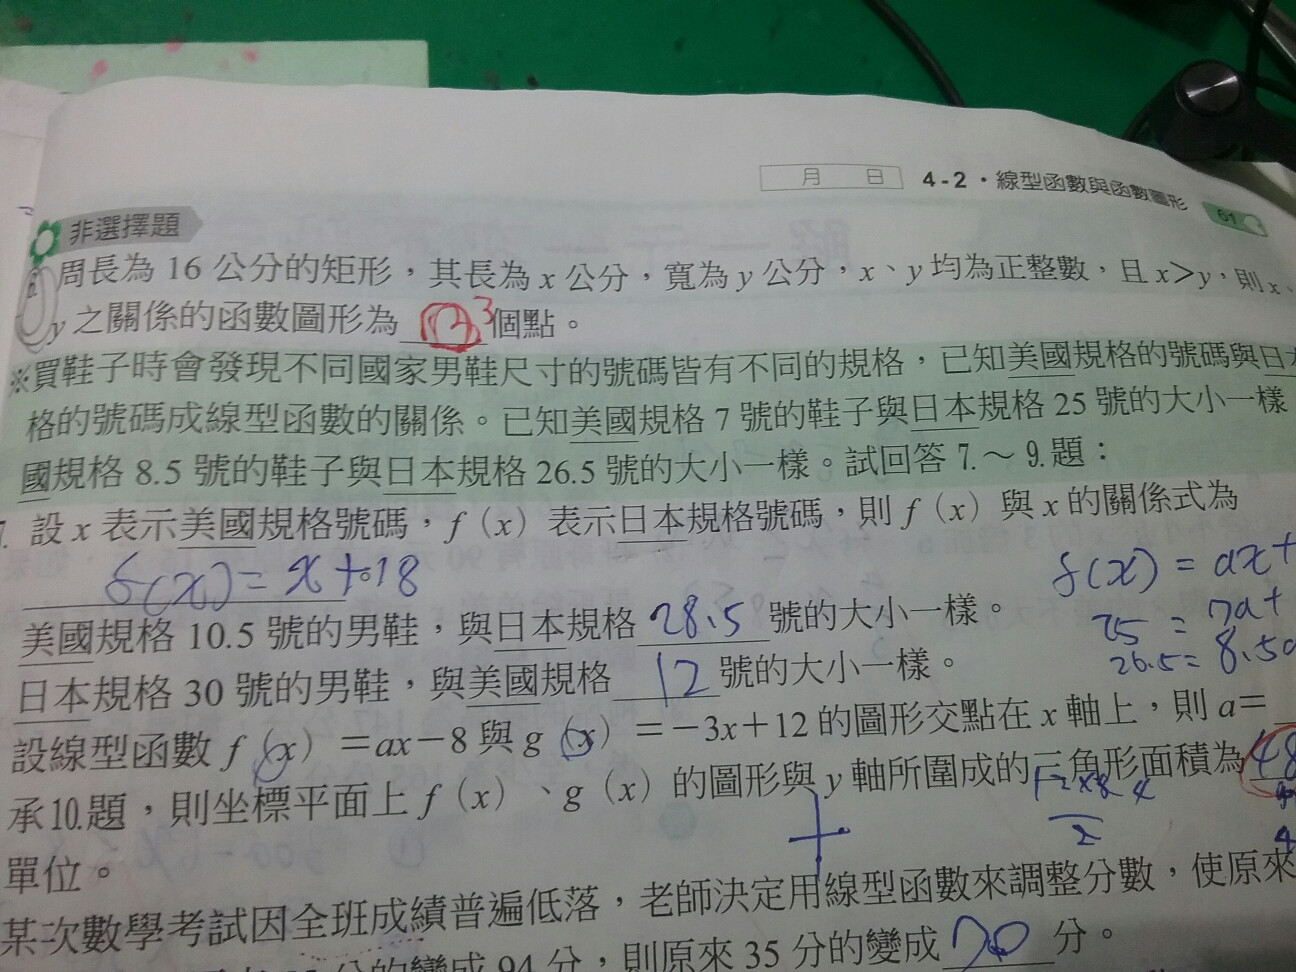 月 日 4-2・線型函數與函數圖形 61
非選擇題
周長為 16 公分的矩形，其長為 x 公分，寬為 y 公分，x、y 均為正整數，且 x>y，則 x、
y 之關係的函數圖形為 3 個點。
※買鞋子時會發現不同國家男鞋尺寸的號碼皆有不同的規格，已知美國規格的號碼與日
格的號碼成線型函數的關係。已知美國規格 7 號的鞋子與日本規格 25 號的大小一樣
國規格 8.5 號的鞋子與日本規格 26.5 號的大小一樣。試回答 7.～9.題：
7. 設 x 表示美國規格號碼，f（x）表示日本規格號碼，則 f（x）與 x 的關係式為
f(x)= x+18
f(x) = ax+
美國規格 10.5 號的男鞋，與日本規格 28.5 號的大小一樣。
25 = 7a+
26.5= 8.5a
日本規格 30 號的男鞋，與美國規格 12 號的大小一樣。
設線型函數 f（x）＝ax－8 與 g（x）＝－3x＋12 的圖形交點在 x 軸上，則 a＝
承10.題，則坐標平面上 f（x）、g（x）的圖形與 y 軸所圍成的三角形面積為 48
2
4
單位。
某次數學考試因全班成績普遍低落，老師決定用線型函數來調整分數，使原來
分的變成 94 分，則原來 35 分的變成 70 分。